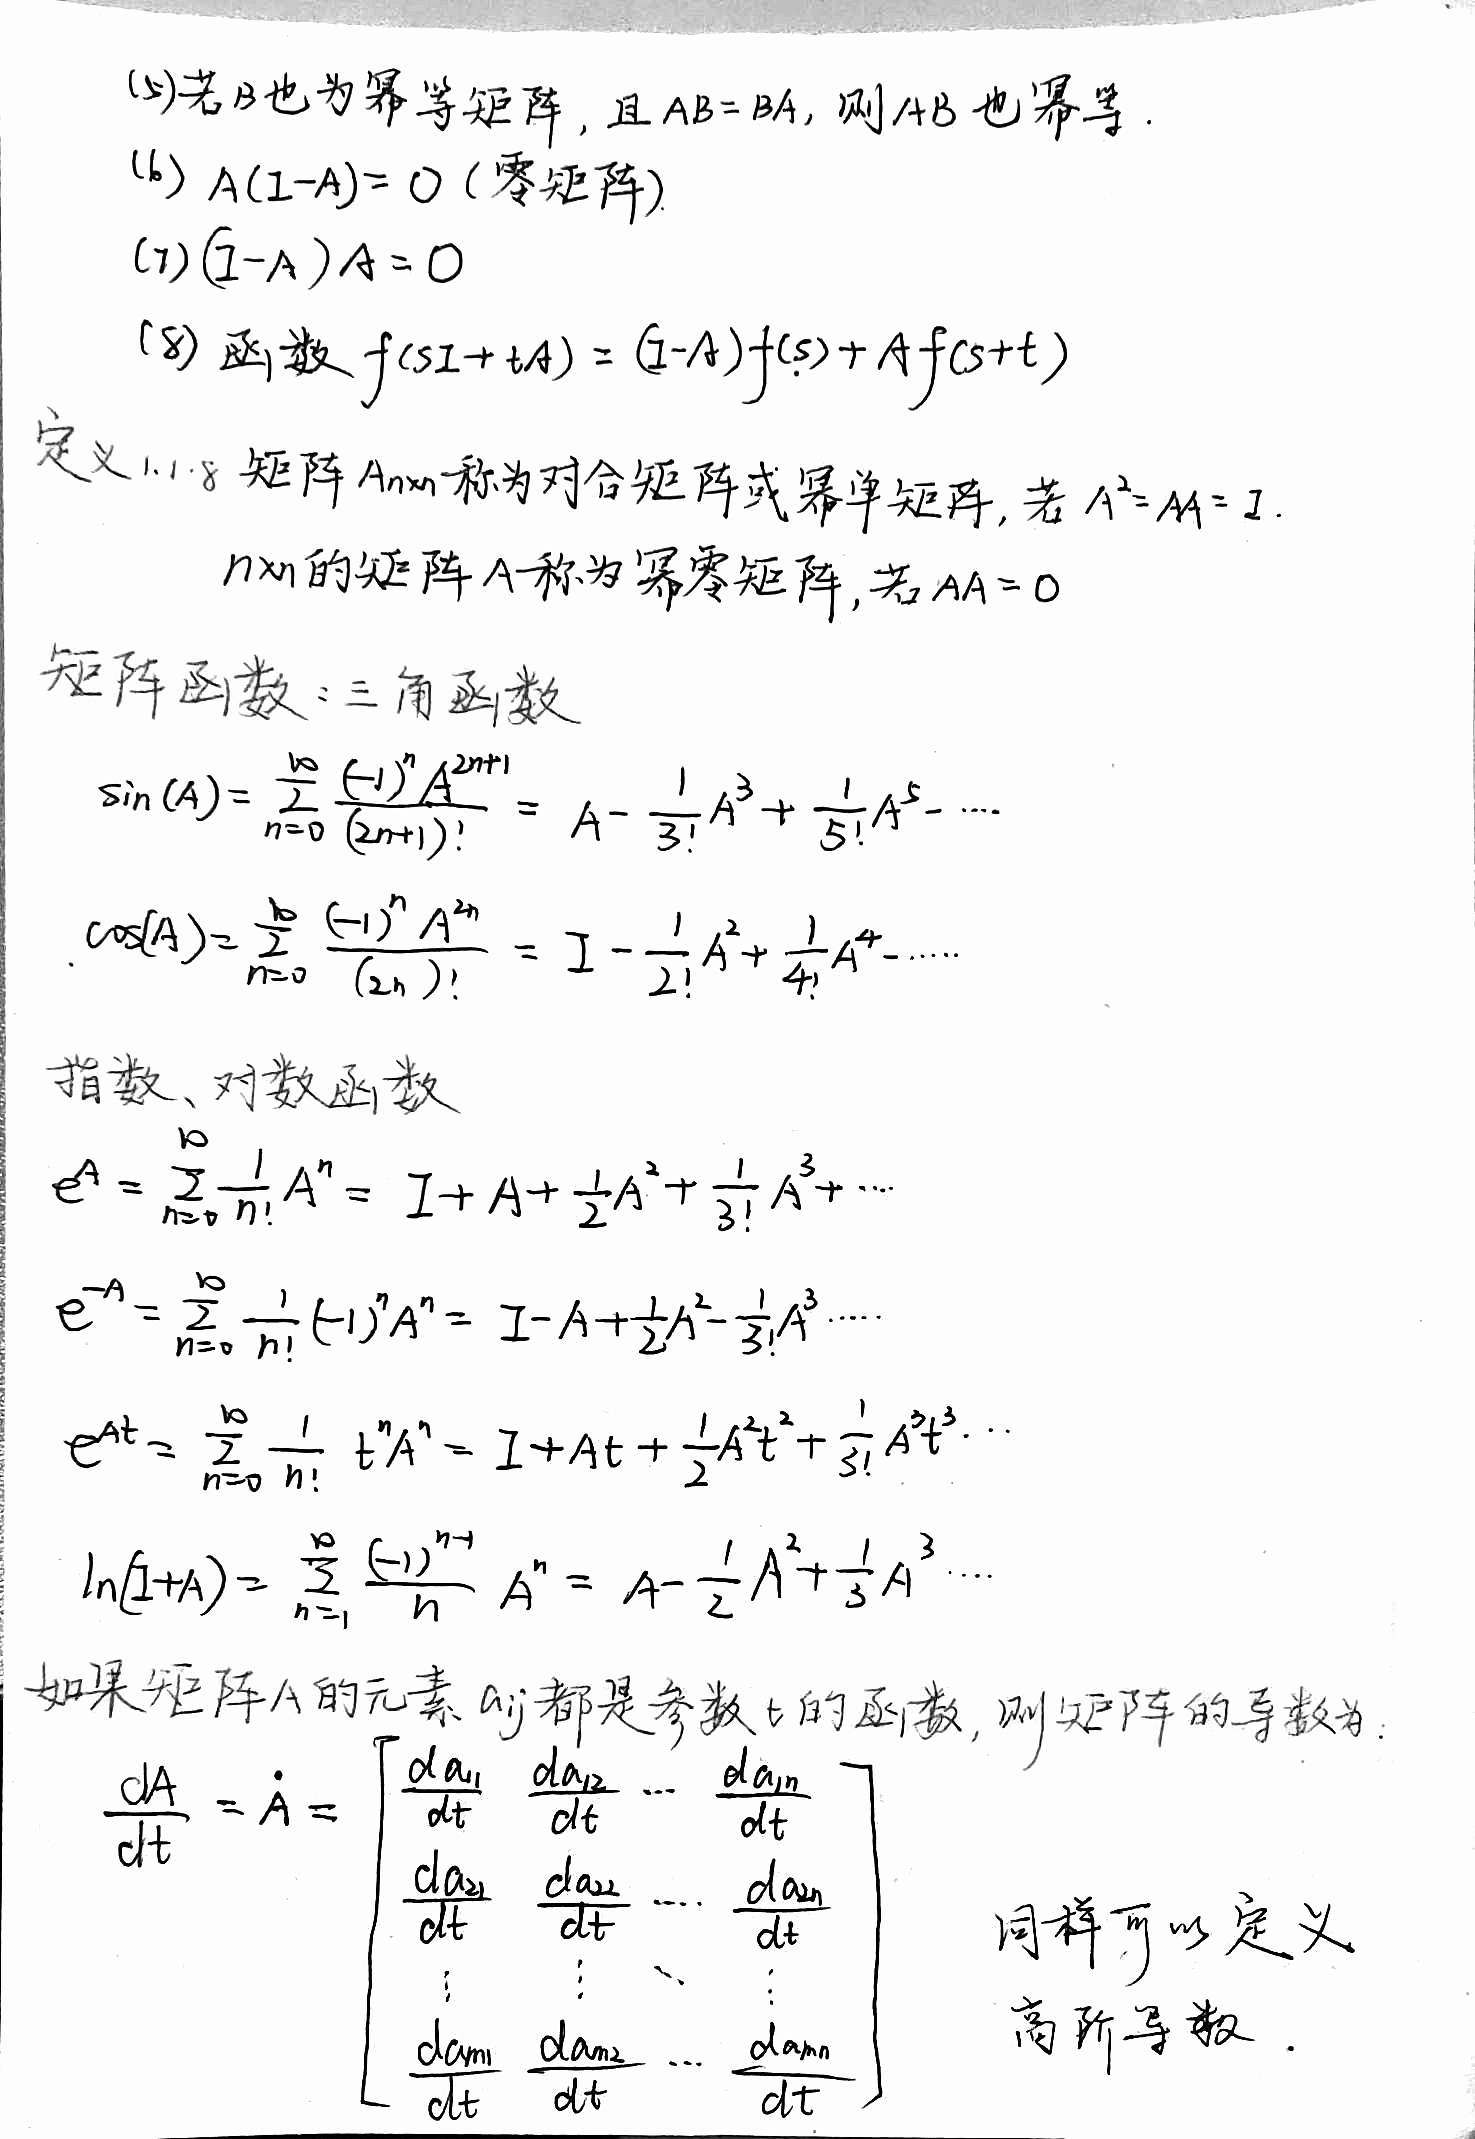 (5)若B也为幂等矩阵,且AB=BA,则AB也幂等.
(6) A(I-A)=0(零矩阵).
(7)(I-A)A=0
(8) 函数 f(sI+tA)=(I-A)f(s)+Af(s+t)
定义1.1.8 矩阵Aₙₓₙ称为对合矩阵或幂单矩阵,若A²=AA=I.
n×n的矩阵A称为幂零矩阵,若AA=0
矩阵函数:三角函数
sin(A)=∑_{n=0}^{∞} \frac{(-1)^n A^{2n+1}}{(2n+1)!} = A-\frac{1}{3!}A^3+\frac{1}{5!}A^5-····
cos(A)=∑_{n=0}^{∞} \frac{(-1)^n A^{2n}}{(2n)!} = I-\frac{1}{2!}A^2+\frac{1}{4!}A^4-·····
指数、对数函数
e^A=∑_{n=0}^{∞} \frac{1}{n!}A^n= I+A+\frac{1}{2}A^2+\frac{1}{3!}A^3+···
e^{-A}=∑_{n=0}^{∞} \frac{1}{n!}(-1)^nA^n= I-A+\frac{1}{2}A^2-\frac{1}{3!}A^3·····
e^{At}=∑_{n=0}^{∞} \frac{1}{n!} t^nA^n= I+At+\frac{1}{2}A^2t^2+\frac{1}{3!}A^3t^3···
ln(I+A)=∑_{n=1}^{∞} \frac{(-1)^{n-1}}{n} A^n= A-\frac{1}{2}A^2+\frac{1}{3}A^3····
如果矩阵A的元素aij都是参数t的函数,则矩阵的导数为:
\frac{dA}{dt}=\dot{A}=\begin{bmatrix} \frac{da_{11}}{dt} & \frac{da_{12}}{dt} & ··· & \frac{da_{1n}}{dt} \\ \frac{da_{21}}{dt} & \frac{da_{22}}{dt} & ···· & \frac{da_{2n}}{dt} \\ ⋮ & ⋮ & ⋱ & ⋮ \\ \frac{da_{m1}}{dt} & \frac{da_{m2}}{dt} & ··· & \frac{da_{mn}}{dt} \end{bmatrix}
同样可以定义
高阶导数.